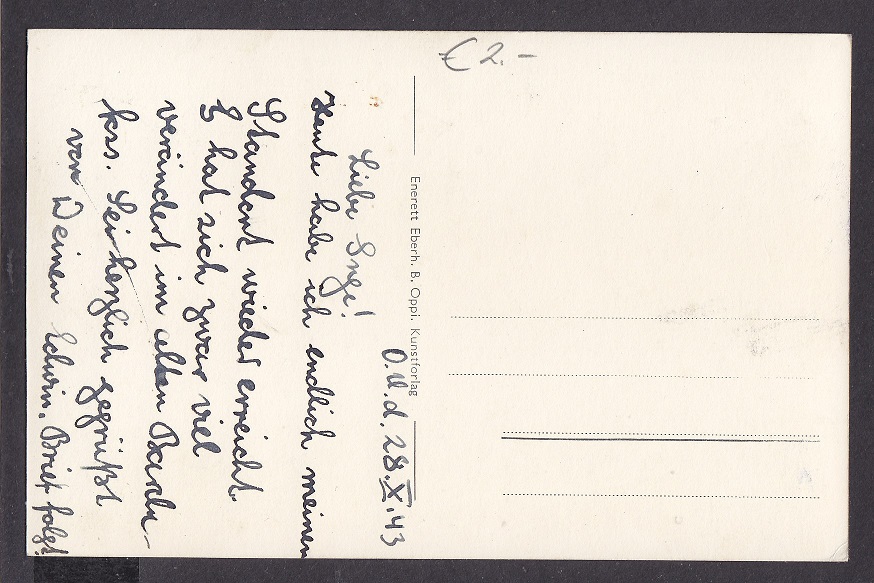 O.U.d. 28.X.43
Liebe Inge!
Heute habe ich endlich meinen
Standort wieder erreicht.
Es hat sich zwar viel
verändert im alten Barak-
kas. Sei herzlich gegrüßt
von Deinem Edwin. Brief folgt!
Enerett Eberh. B. Oppi. Kunstforlag
€ 2.-